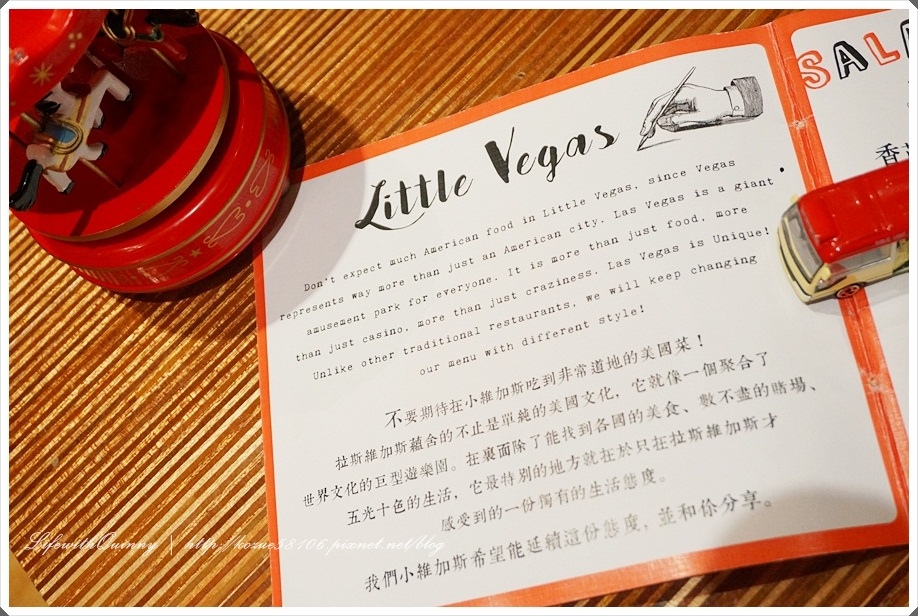 Little Vegas
Don't expect much American food in Little Vegas, since Vegas
represents way more than just an American city. Las Vegas is a giant
amusement park for everyone. It is more than just food, more
than just casino, more than just craziness. Las Vegas is Unique!
Unlike other traditional restaurants, we will keep changing
our menu with different style!
不要期待在小維加斯吃到非常道地的美國菜！
拉斯維加斯蘊含的不止是單純的美國文化，它就像一個聚合了
世界文化的巨型遊樂園。在裏面除了能找到各國的美食、數不盡的賭場、
五光十色的生活，它最特別的地方就在於只在拉斯維加斯才
感受到的一份獨有的生活態度。
我們小維加斯希望能延續這份態度，並和你分享。
SAL
香
LifewithQuinny | http://kozue38106.pixnet.net/blog